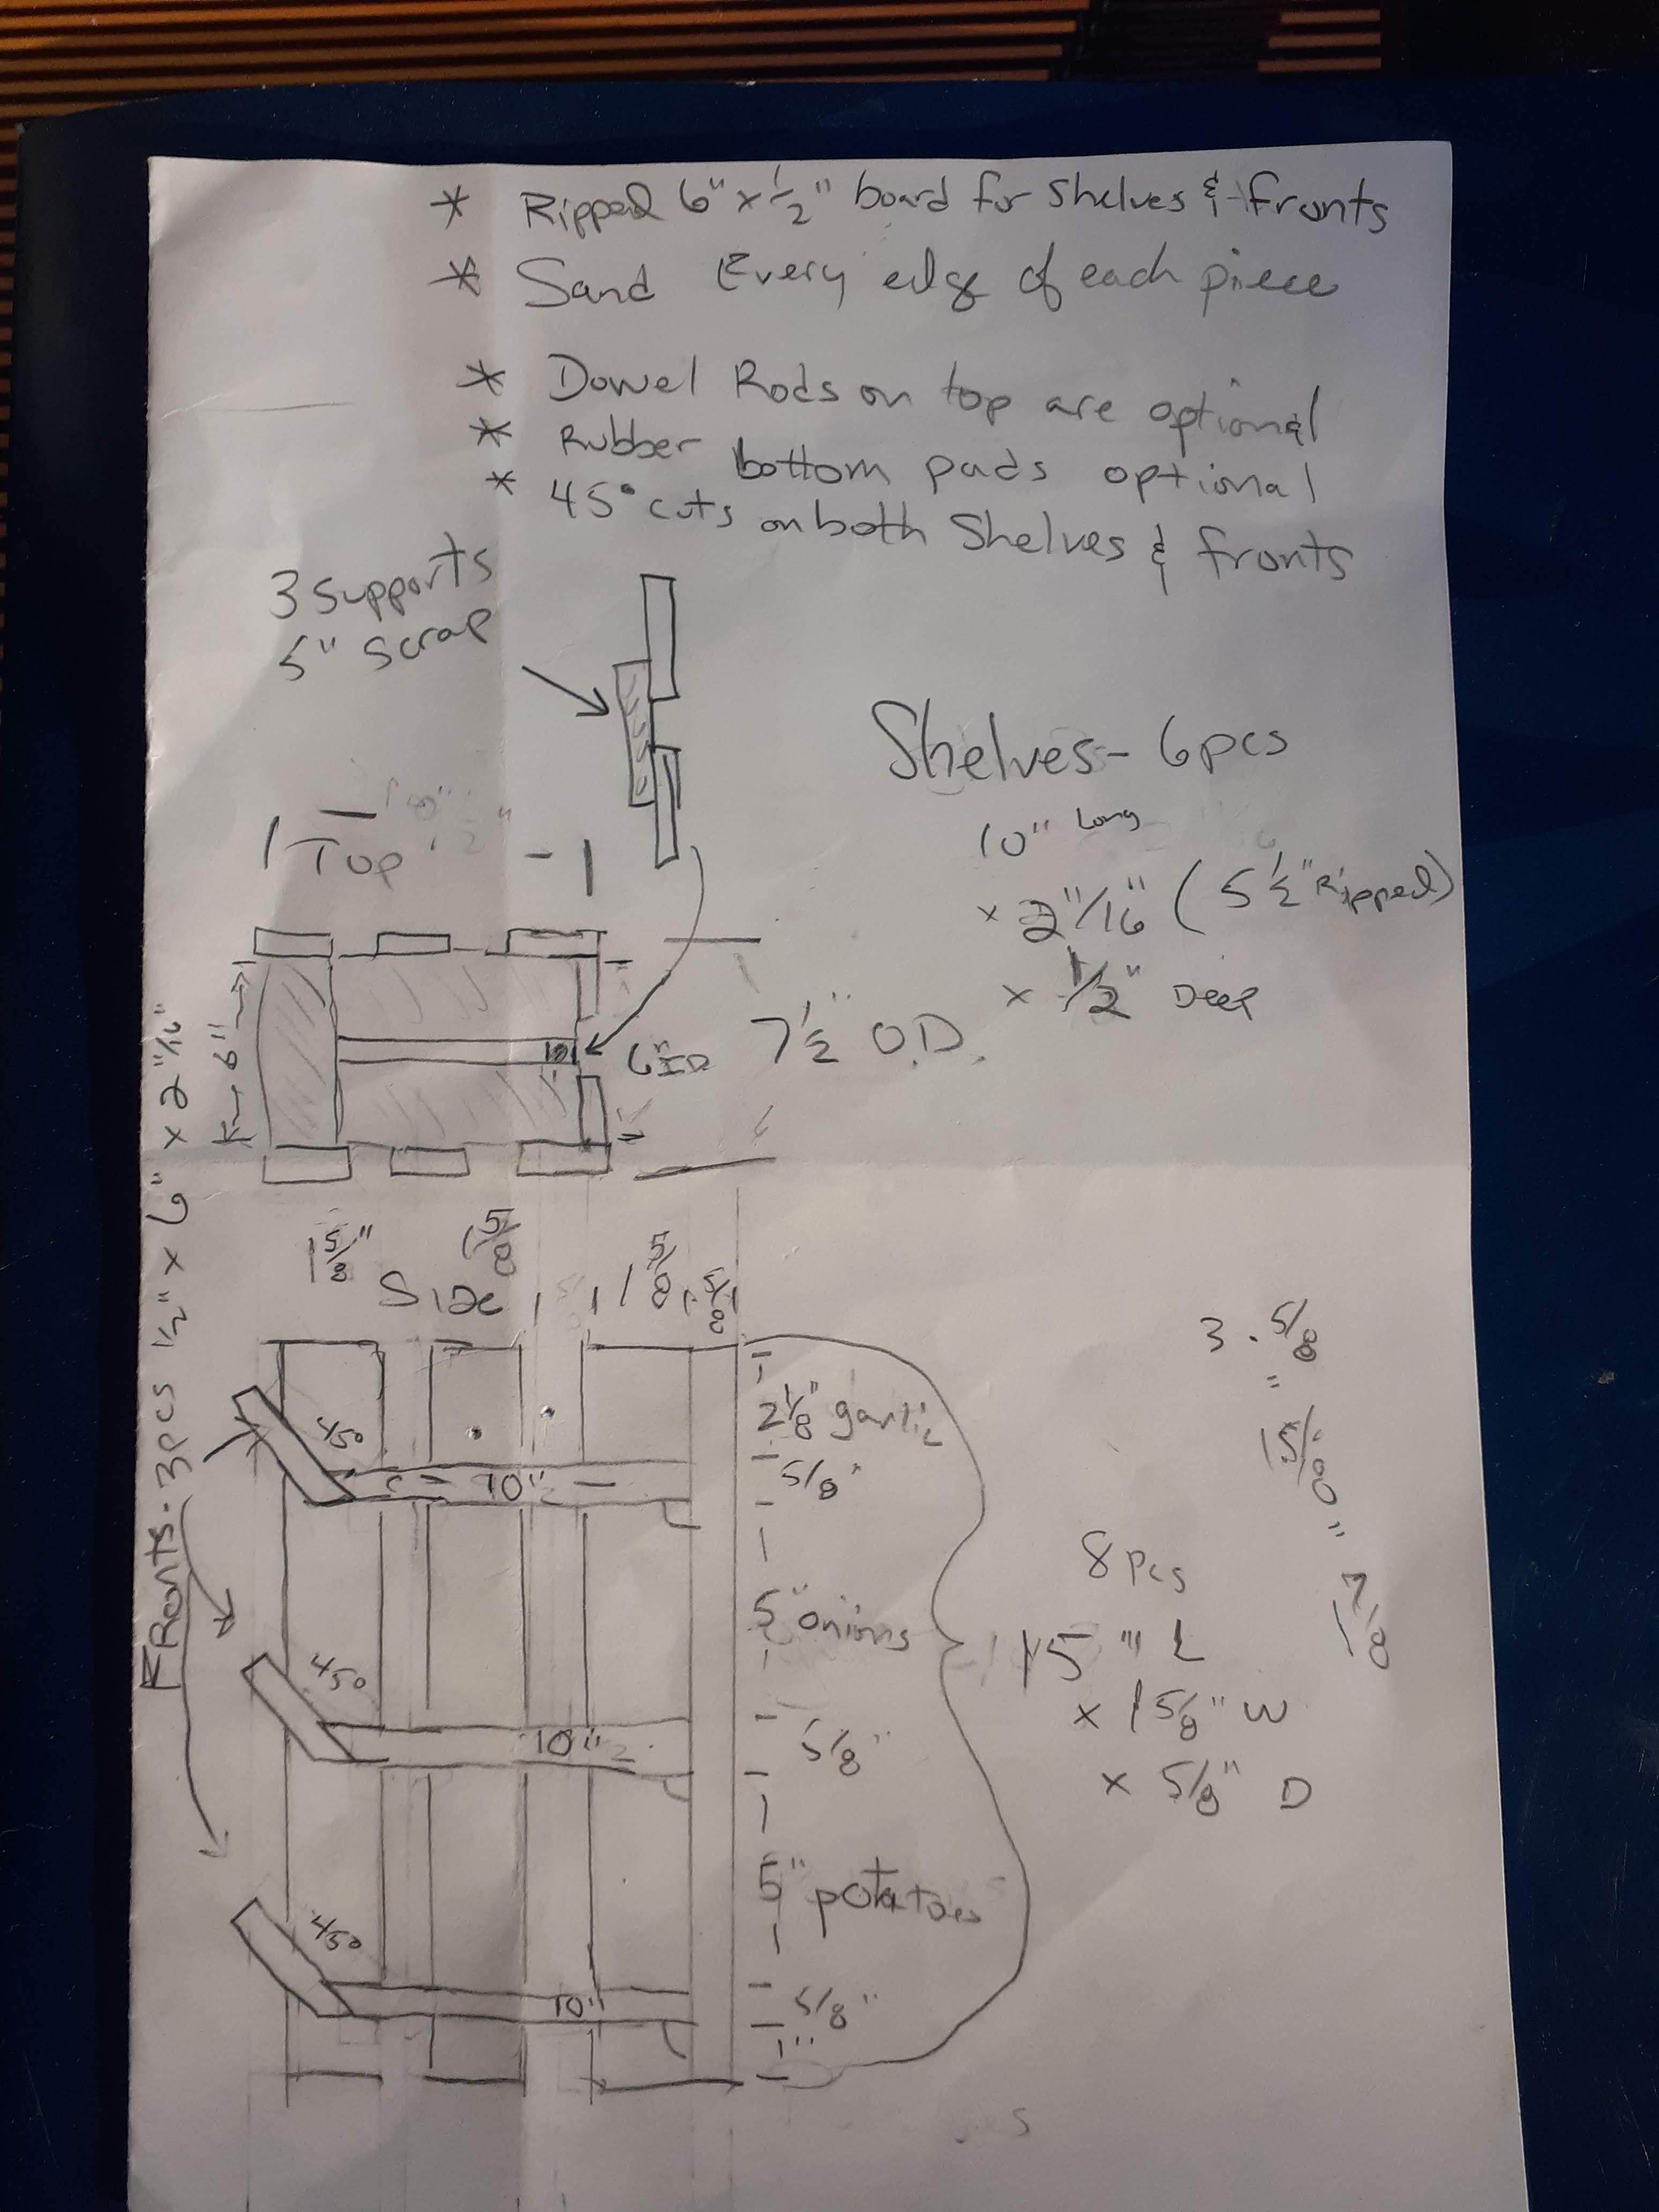 * Ripped 6" x 1/2" board for shelves & fronts
* Sand Every edge of each piece
* Dowel Rods on top are optional
* Rubber bottom pads optional
* 45° cuts on both Shelves & fronts
3 supports
5" scrap
Shelves - 6pcs
10" Long
x 2 11/16" (5 1/2" Ripped)
x 1/2" Deep
Top
6"
6" ID
7 1/2" O.D.
FRonts - 3pcs 1/2" x 6" x 2 11/16"
1 5/8"
1 5/8
1 5/8
5/8
Side
45°
2 1/8" garlic
10"
5/8"
5" onions
45°
10"
5/8"
5" potatoes
45°
10"
5/8"
1"
3 . 5/8
=
15/8"
1 7/8
8 pcs
15" L
x 1 5/8" W
x 5/8" D